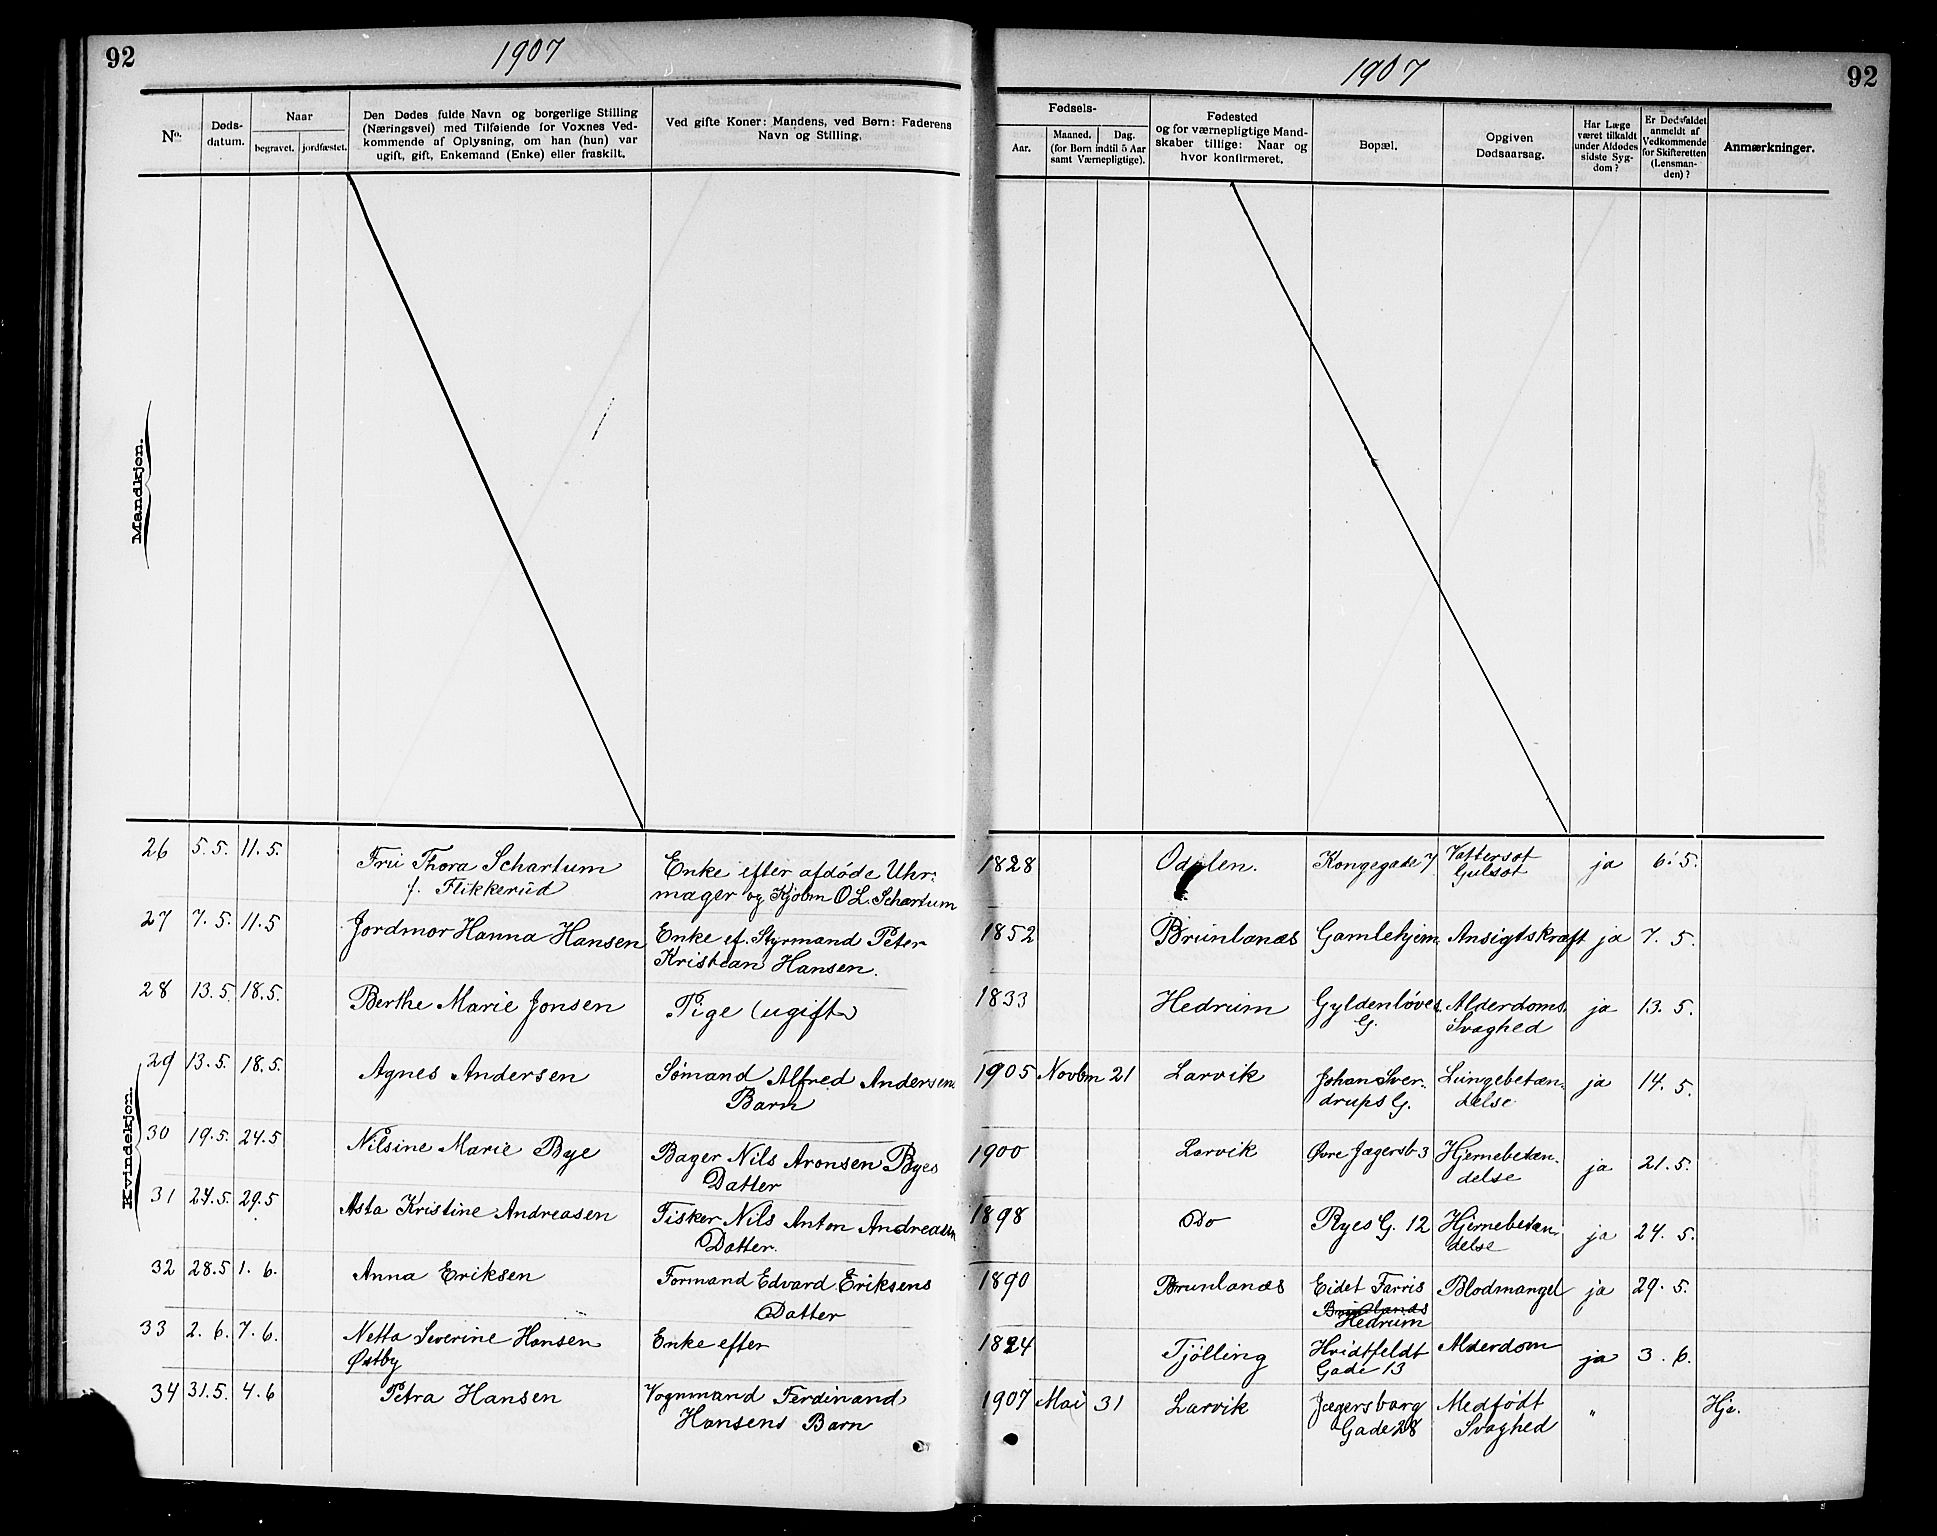 92
1907
1907
92
No.
Døds-
datum.
Naar
begravet.
jordfæstet.
Den Dødes fulde Navn og borgerlige Stilling
(Næringsvei) med Tilføiende for Voxnes Ved-
kommende af Oplysning, om han (hun) var
ugift, gift, Enkemand (Enke) eller fraskilt.
Ved gifte Koner: Mandens, ved Børn: Faderens
Navn og Stilling.
Fødsels-
Aar.
Maaned. Dag.
(for Børn indtil 5 Aar
samt Værnepligtige).
Fødested
og for værnepligtige Mand-
skaber tillige: Naar og
hvor konfirmeret.
Bopæl.
Opgiven
Dødsaarsag.
Har Læge
været tilkaldt
under Afdødes
sidste Syg-
dom?
Er Dødsfaldet
anmeldt af
Vedkommende
for Skifteretten
(Lensman-
den)?
Anmærkninger.
Mandkjøn.
Kvindekjøn.
26 5.5. 11.5. Fru Thora Schartum Enke efter afdøde Uhr- 1828 Odalen. Kongegade 7 Vattersot ja 6.5.
f. Flikkerud mager og Kjøbm O L. Schartum Gulsot
27 7.5. 11.5 Jordmor Hanna Hansen Enke ef. Styrmand Peter 1852 Brunlanæs Gamlehjem Ansigtskræft ja 7.5.
Kristian Hansen.
28 13.5. 18.5. Berthe Marie Jonsen Pige (ugift) 1833 Hedrum Gyldenløves Alderdoms ja 13.5.
G. Svaghed
29 13.5. 18.5. Agnes Andersen Sømand Alfred Andersens 1905 Novbm 21 Larvik Johan Sver- Lungebetæn- ja 14.5.
Barn drups G. delse
30 19.5. 24.5 Nilsine Marie Bye Bager Nils Aronsen Byes 1900 Larvik Øvre Jægersb 3 Hjernebetæn- ja 21.5.
Datter delse
31 24.5. 29.5 Asta Kristine Andreasen Fisker Nils Anton Andreasen 1898 Do Ryes G. 12 Hjernebetæn- ja 24.5.
Datter. delse
32 28.5 1.6. Anna Eriksen Formand Edvard Eriksens 1890 Brunlanæs Eidet Farris Blodmangel ja 29.5.
Datter Brunlanæs
Hedrum
33 2.6. 7.6. Netta Severine Hansen Enke efter 1824 Tjølling Hvidtfeldt Alderdom ja 3.6.
Østby Gade 13
34 31.5. 4.6 Petra Hansen Vognmand Ferdinand 1907 Mai 31 Larvik Jægersborg Medfødt " Hje.
Hansens Barn Gade 28 Svaghed